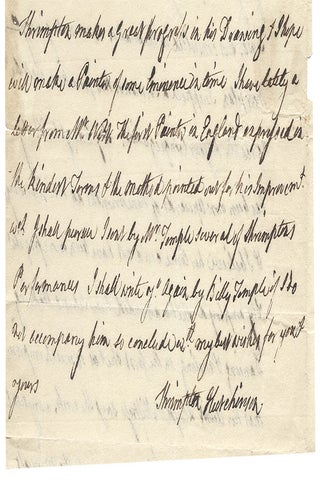 Shrimpton makes a Great progress in his Drawing, & I hope
will make a Painter of some Eminence in time I have lately a
Letter from Mr. West The first Painter in England expressed in
the kindest Terms & the method pointed out for his Improvemt.
wch. I shall pursue I sent by Mr. Temple several of Shrimptons
Performances I shall write yo. again by Billy Temple if I do
not accompany him so conclude wth. my best wishes for you &
yours
Shrimpton Hutchinson